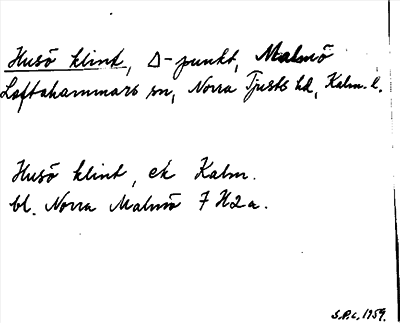 Husö klint, Δ-punkt, Malmö
Loftahammars sn, Norra Tjusts hd, Kalm. l.
Husö klint, ek Kalm.
bl. Norra Malmö 7 H2a.
S.P.L. 1959.